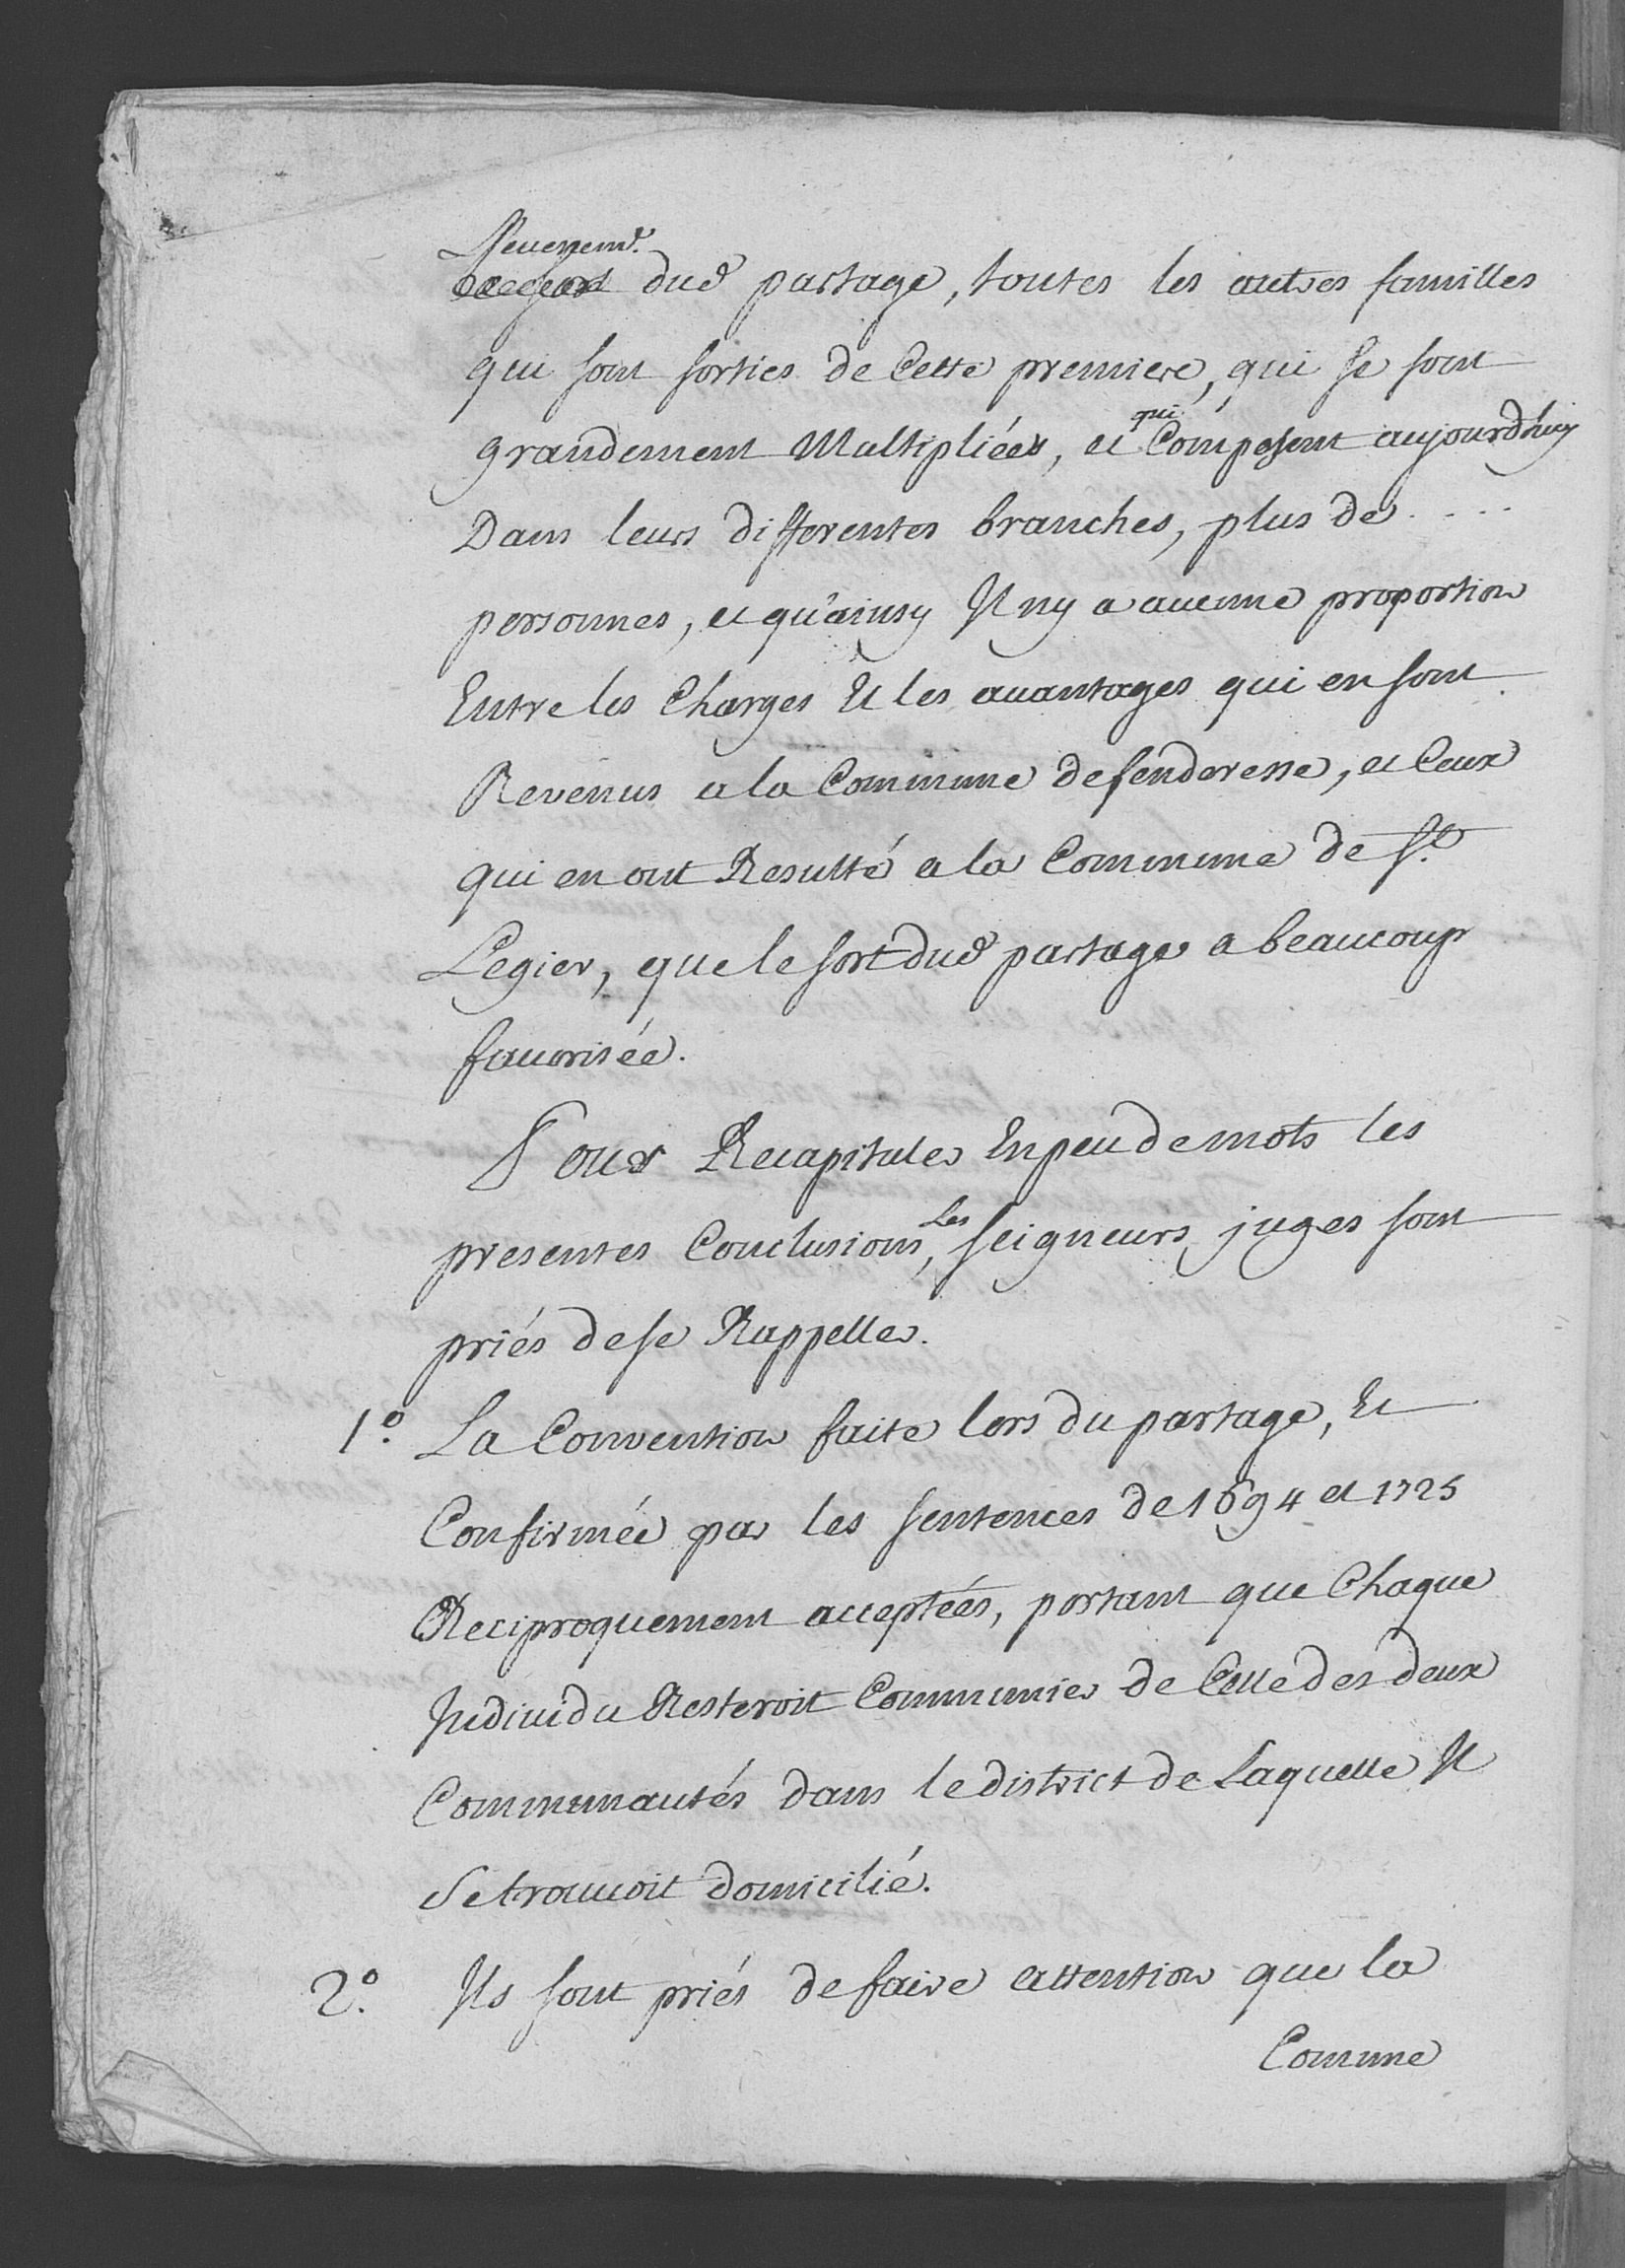 L'evenemt.
dud partage, toutes les autres familles
qui sont sorties de Cette premiere, qui se sont
grandement Multipliées, et qui Composent aujourdhuy
Dans leurs differentes branches, plus de ....
personnes, et qu'ainsy Il ny a aucune proportion
Entre les Charges Et les avantages qui en sont
Revenus a la Commune defenderesse, et Ceux
qui en ont Resulté a la Commune de St
Legier, que le sort dud partage a beaucoup
favorisée.
Pour Recapituler En peu de mots les
presentes Conclusions, Les seigneurs juges sont
priés de se Rappeller.
1.o La Convention faite lors du partage, Et
Confirmée par les sentences de 1694 et 1725
Reciproquement acceptées, portant que Chaque
Individu Resteroit Communier de Celle des deux
Communautés dans le district de Laquelle Il
Se trouvoit domicilié.
2.o Ils sont priés de faire attention que la
Comune